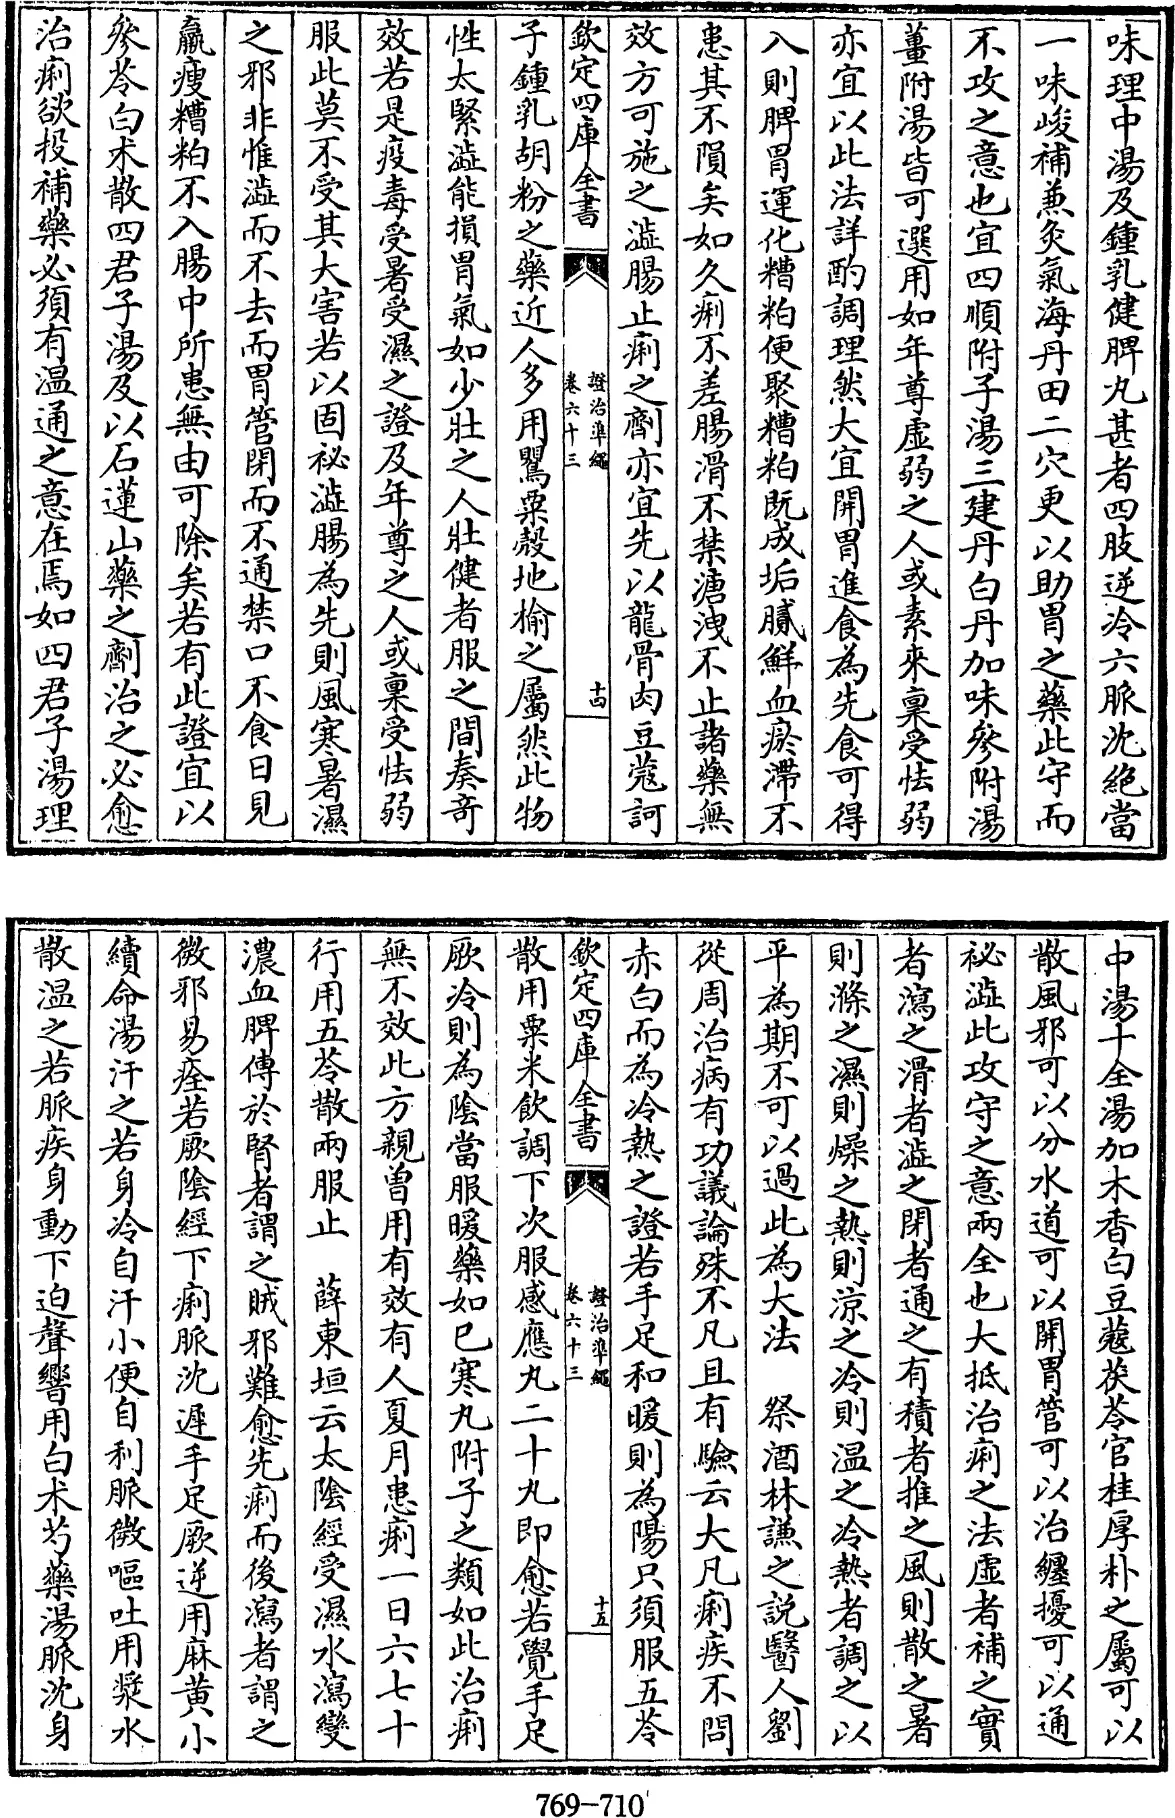 味理中湯及鍾乳健脾丸甚者四肢逆冷六脈沈絶當
一味峻補兼灸氣海丹田二穴更以助胃之藥此守而
不攻之意也宜四順附子湯三建丹白丹加味參附湯
薑附湯皆可選用如年尊虛弱之人或素來稟受怯弱
亦宜以此法詳酌調理然大宜開胃進食為先食可得
入則脾胃運化糟粕便聚糟粕既成垢膩鮮血瘀滯不
患其不隕矣如久痢不差腸滑不禁溏洩不止諸藥無
效方可施之澁腸止痢之劑亦宜先以龍骨肉豆蔻訶
欽定四庫全書
證治準繩
卷六十三
十四
子鍾乳胡粉之藥近人多用罌粟殼地榆之屬然此物
性太緊澁能損胃氣如少壯之人壯健者服之間奏奇
效若是疫毒受暑受濕之證及年尊之人或稟受怯弱
服此莫不受其大害若以固秘澁腸為先則風寒暑濕
之邪非惟澁而不去而胃管閉而不通禁口不食日見
羸瘦糟粕不入腸中所患無由可除矣若有此證宜以
參苓白术散四君子湯及以石蓮山藥之劑治之必愈
治痢欲投補藥必須有温通之意在焉如四君子湯理
中湯十全湯加木香白豆蔻茯苓官桂厚朴之屬可以
散風邪可以分水道可以開胃管可以治纏擾可以通
祕澁此攻守之意兩全也大抵治痢之法虛者補之實
者瀉之滑者澁之閉者通之有積者推之風則散之暑
則滌之濕則燥之熱則涼之冷則温之冷熱者調之以
平為期不可以過此為大法　祭酒林謙之説醫人劉
從周治病有功議論殊不凡且有驗云大凡痢疾不問
赤白而為冷熱之證若手足和暖則為陽只須服五苓
欽定四庫全書
證治準繩
卷六十三
十五
散用粟米飲調下次服感應丸二十丸即愈若覺手足
厥冷則為陰當服暖藥如已寒丸附子之類如此治痢
無不效此方親曾用有效有人夏月患痢一日六七十
行用五苓散兩服止　薛東垣云太陰經受濕水瀉變
濃血脾傳於腎者謂之賊邪難愈先痢而後瀉者謂之
微邪易痊若厥陰經下痢脈沈遲手足厥逆用麻黄小
續命湯汗之若身冷自汗小便自利脈微嘔吐用漿水
散温之若脈疾身動下迫聲響用白术芍藥湯脈沈身
769-710